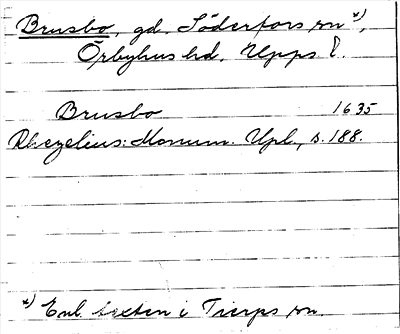 Brusbo, gd, Söderfors sn *),
Örbyhus hd, Upps l.
Brusbo 1635
Rhezelius: Monum. Upl., s. 188.
*) Enl. texten i Tierps sn.